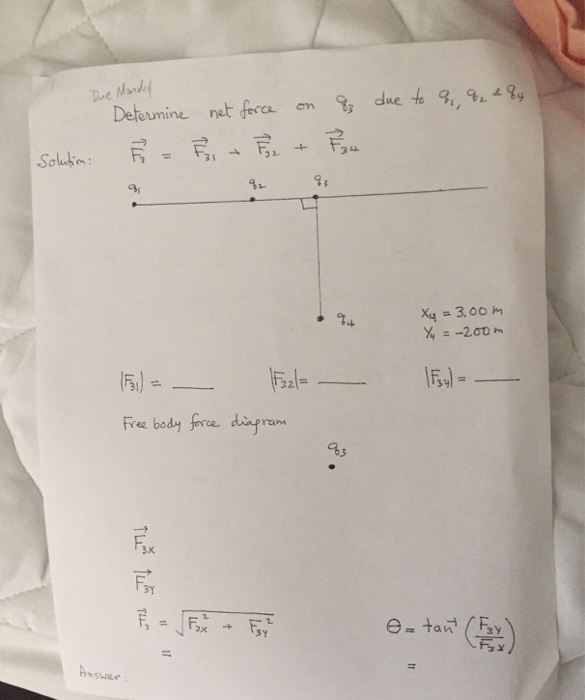 Due Monday
Determine net force on q₃ due to q₁, q₂ & q₄
Solution: F⃗₃ = F⃗₃₁ + F⃗₃₂ + F⃗₃₄
q₁ q₂ q₃
q₄
X₄ = 3.00 m
Y₄ = -2.00 m
|F₃₁) = ___ |F₃₂|= ___ |F₃₄) = ___
Free body force diagram
q₃
F⃗₃X
F⃗₃Y
F⃗₃ = √F₃ₓ² + F₃Y² θ = tan⁻¹ (F₃Y/F₃X)
= =
Answer: